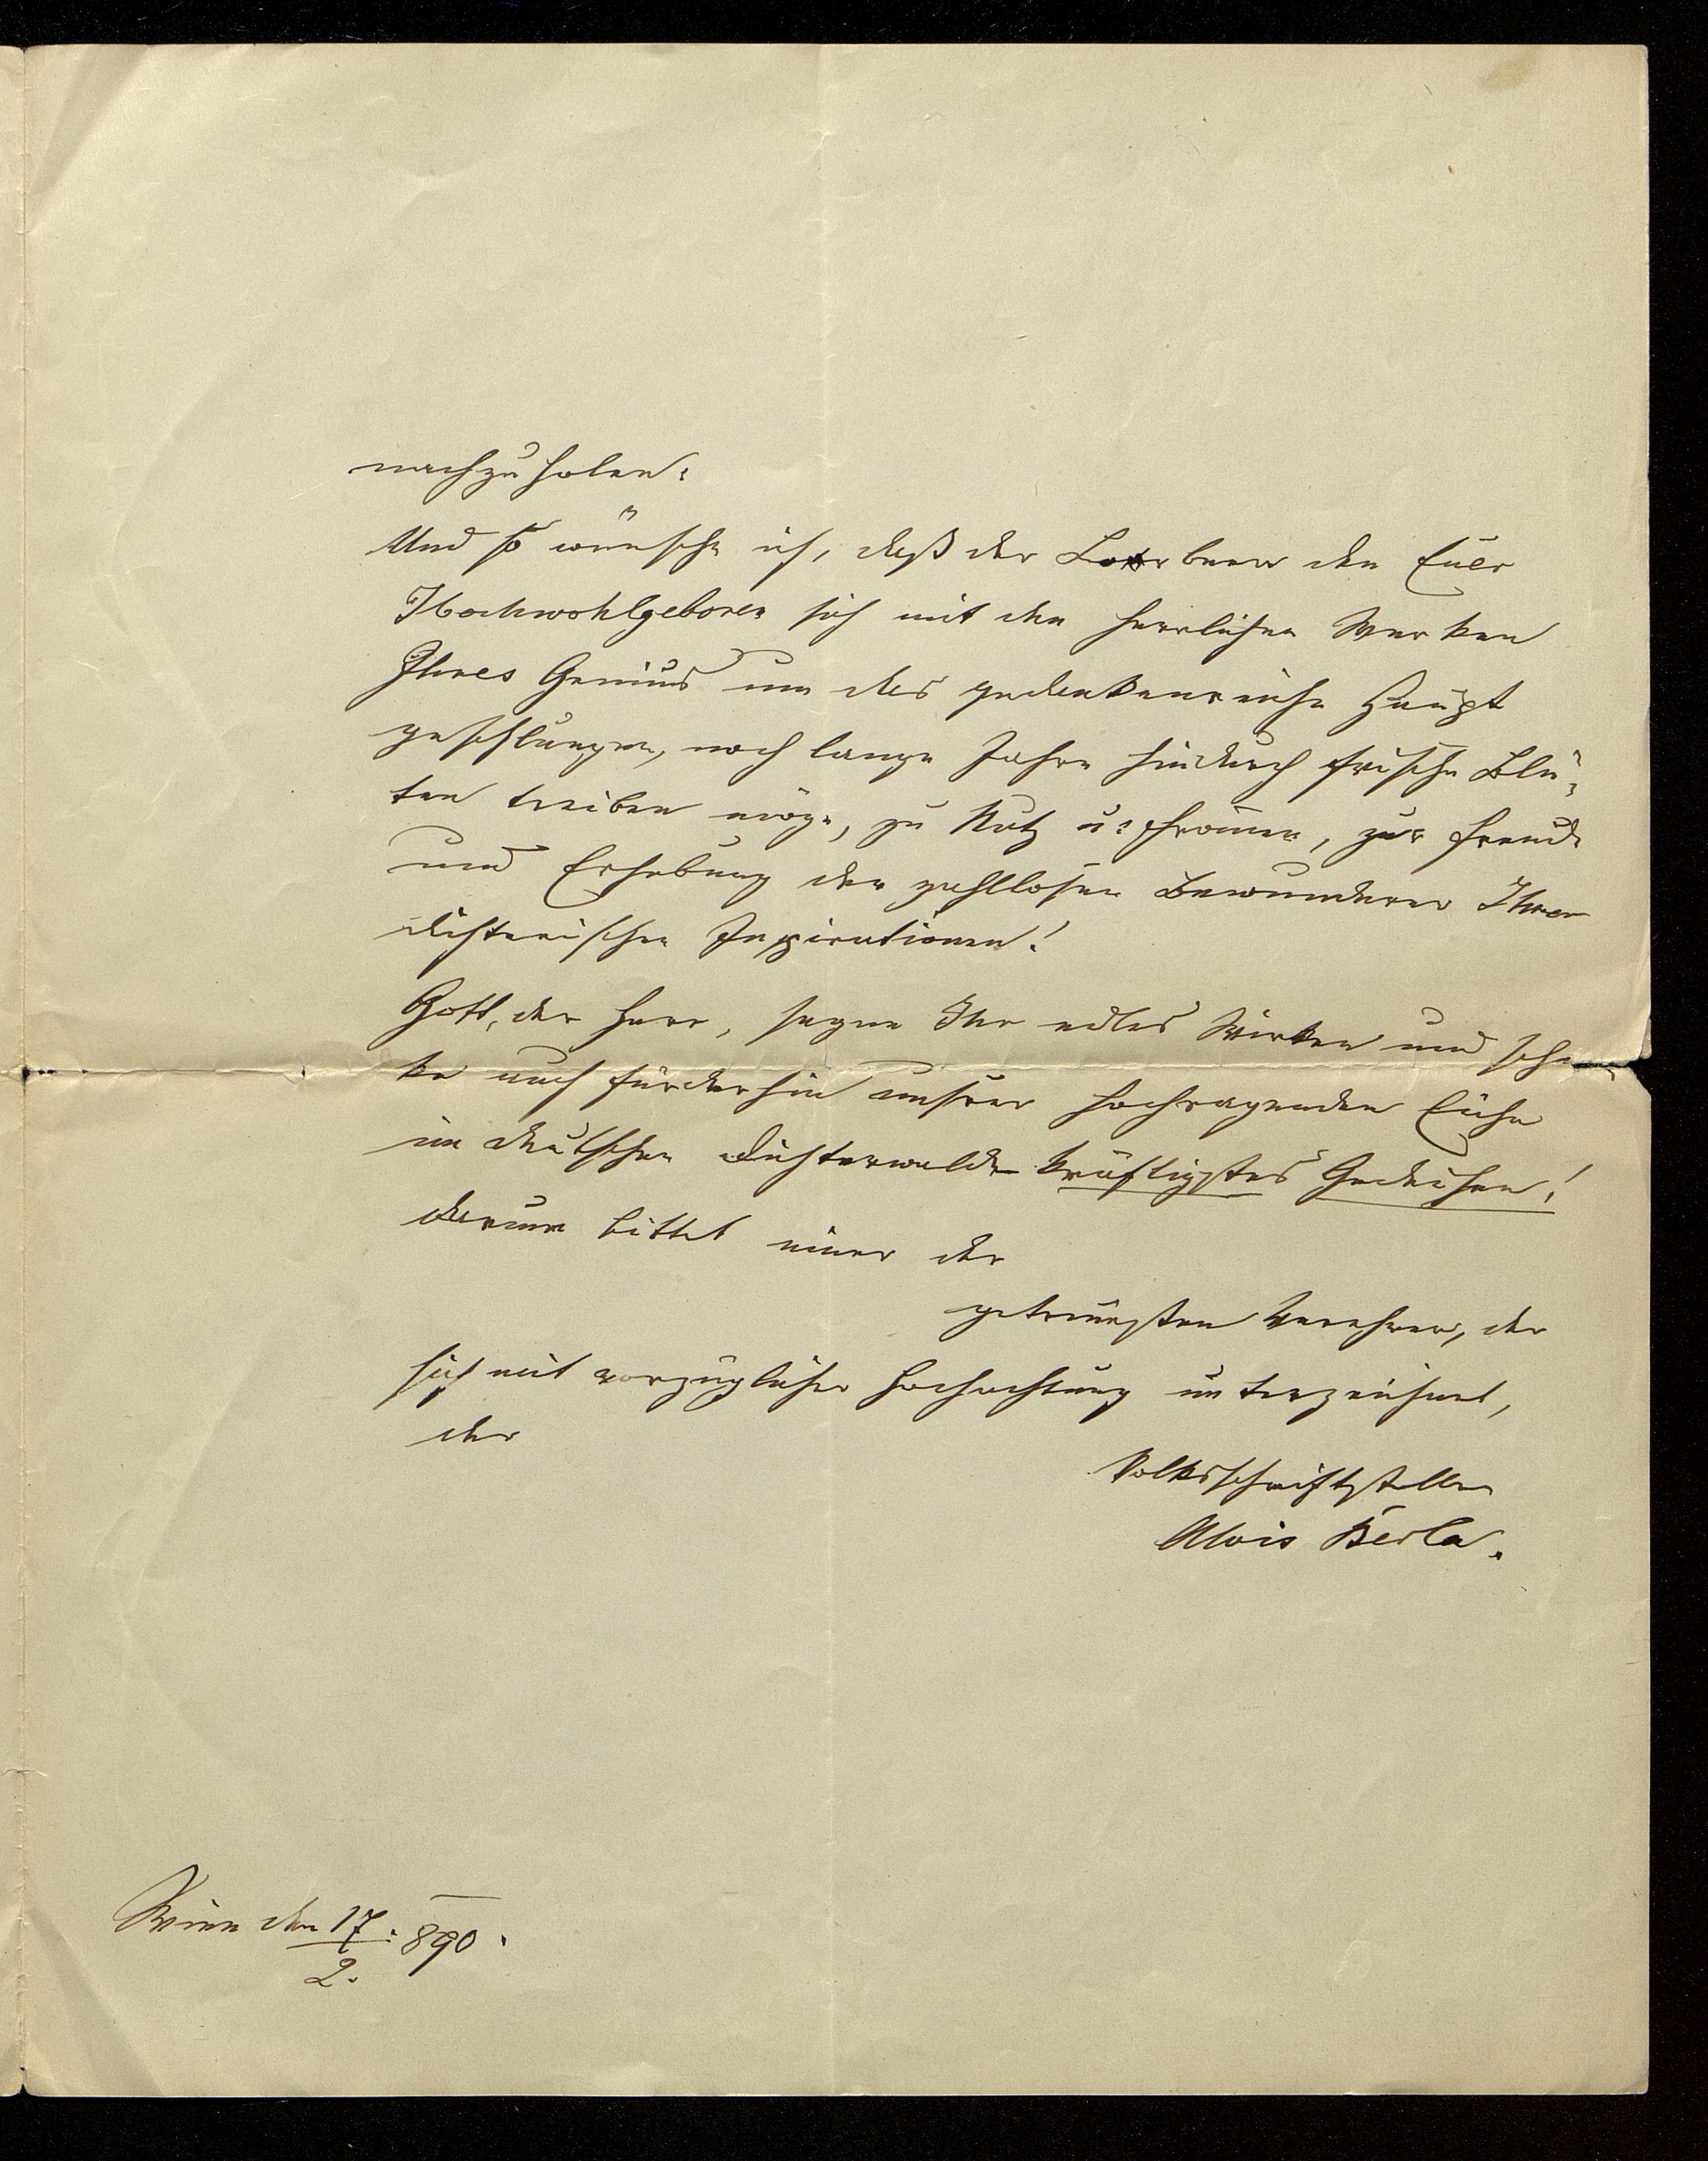 nachzuholen.
Und so wünsche ich, daß der Lorbeer den Euer
Hochwohlgeboren sich mit den herrlichen Werken
Ihres Genius um das gedankenreiche Haupt
geschlungen, noch lange Jahre hindurch frische Blü-
ten treiben möge, zu Nutz u: Frommen, zur Freude
und Erhebung der zahllosen Bewunderer Ihrer
dichterischen Inspirationen!
Gott, der Herr, segne Ihr edles Wirken und schen-
ke auch fürderhin unserer hochragenden Eiche
im deutschen Dichterwalde kräftigstes Gedeihen!
Darum bittet einer der
getreuesten Verehrer, der
sich mit vorzüglicher Hochachtung unterzeichnet,
der
Volksschriftsteller
Alois Berla.
Wien den 17/2. 890.